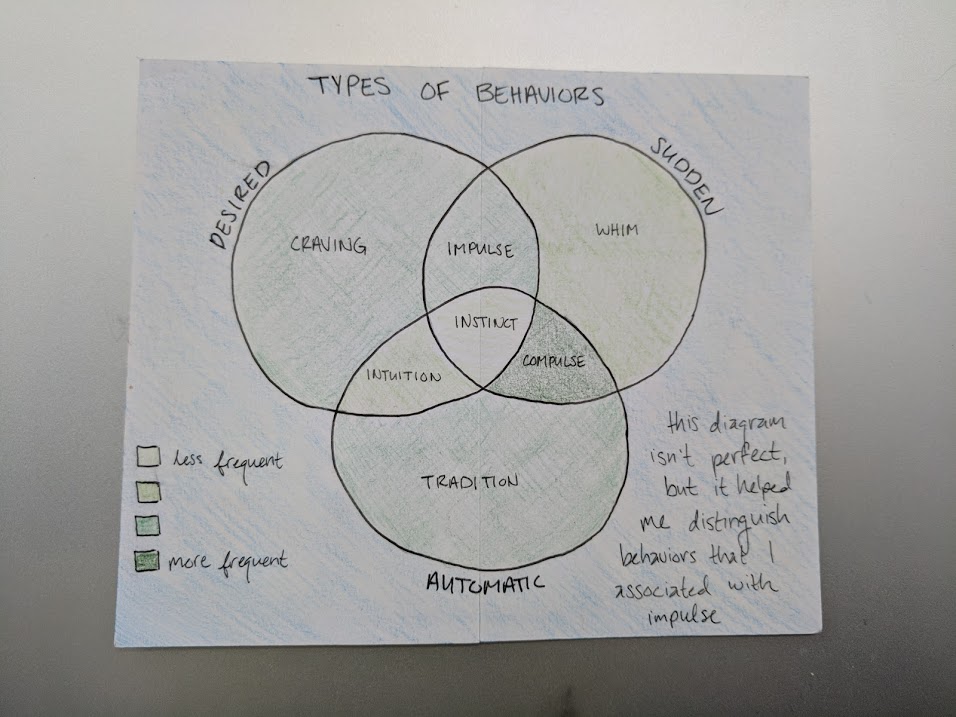 TYPES OF BEHAVIORS
DESIRED
SUDDEN
CRAVING
IMPULSE
WHIM
INSTINCT
INTUITION
COMPULSE
TRADITION
AUTOMATIC
less frequent
more frequent
this diagram
isn't perfect,
but it helped
me distinguish
behaviors that I
associated with
impulse